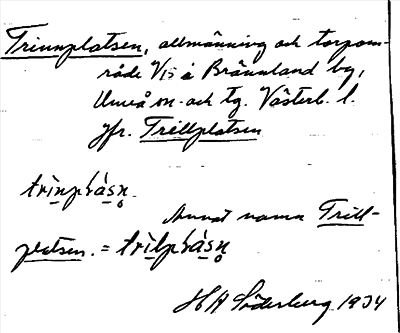 Trinnplatsen, allmänning och torpom-
råde V15 å Brännland by,
Umeå sn. och tg. Västerb. l.
Jfr. Trillplatsen
trìnpɫásn̥.
Annat namn Trill-
platsen. = trìlpɫásn̥
HA Söderberg 1934